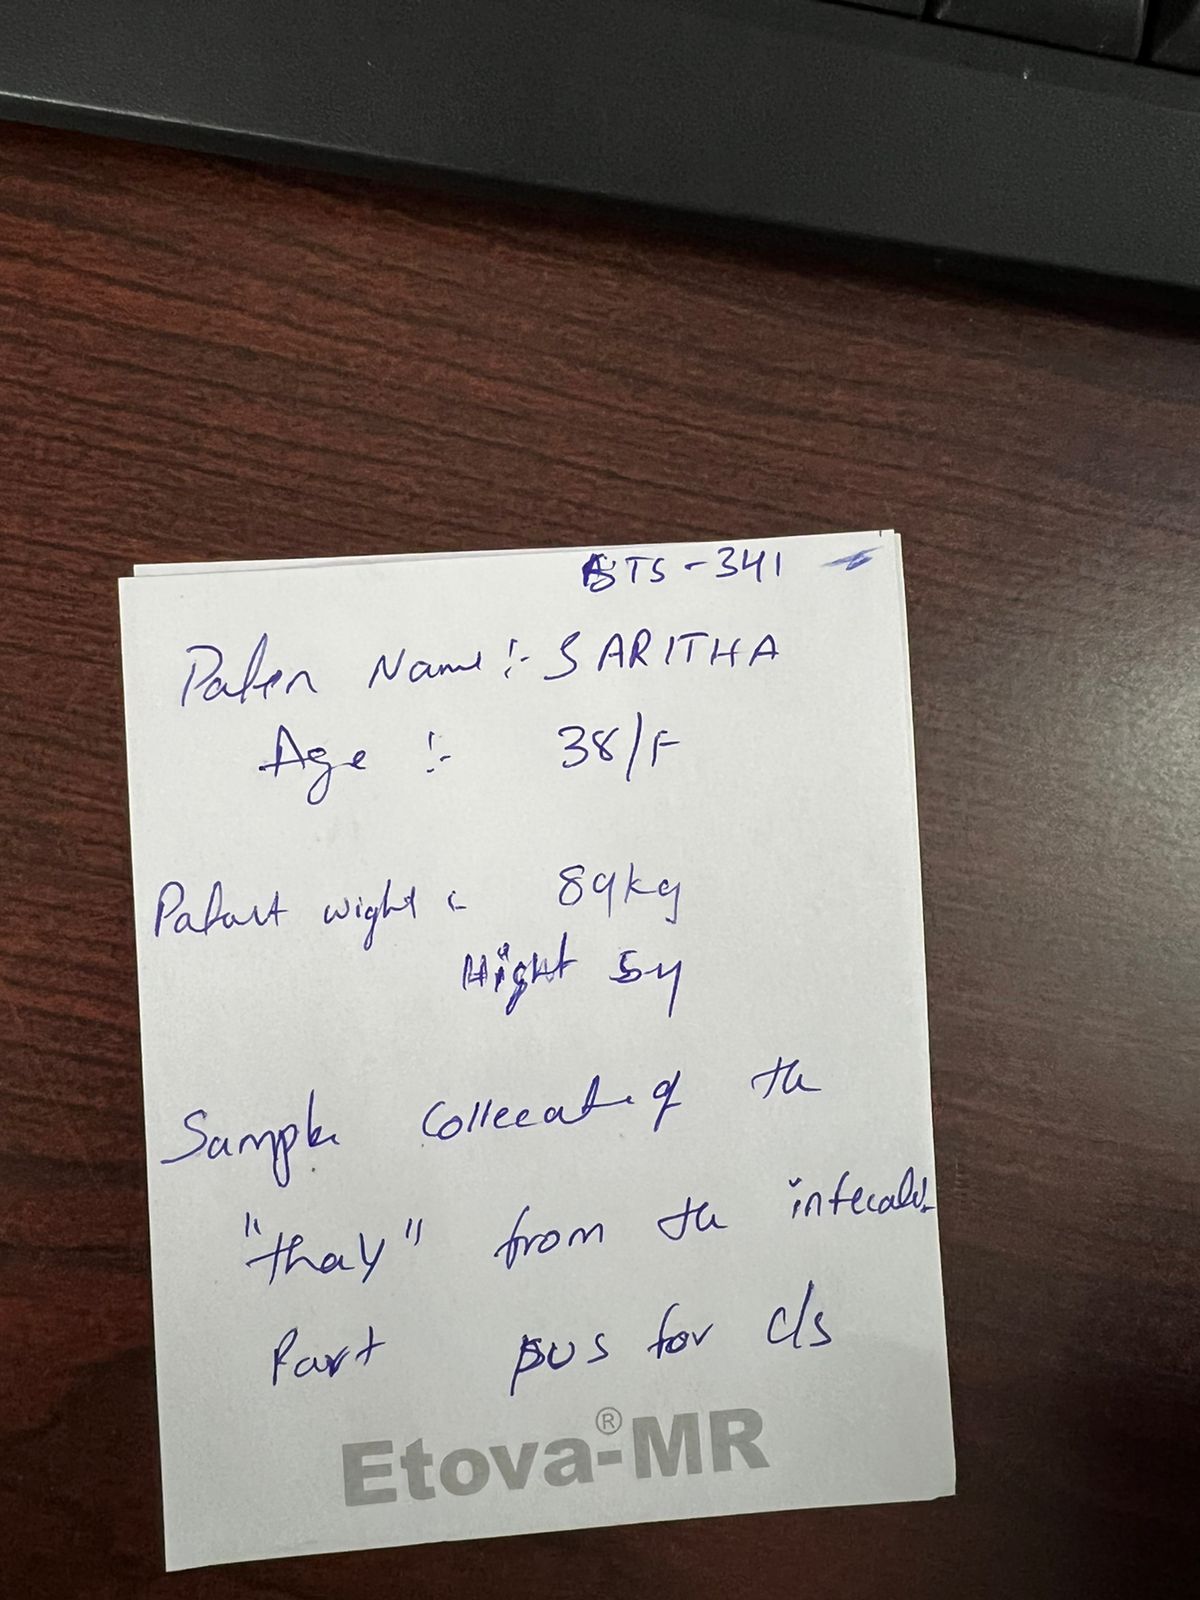 BTS-341
Paten Name :- SARITHA
Age :- 38/F
Patant wight :- 89kg
Hight 54
Sample Collecated of the
"thay" from the infecated
Part pus for c/s
Etova-MR®